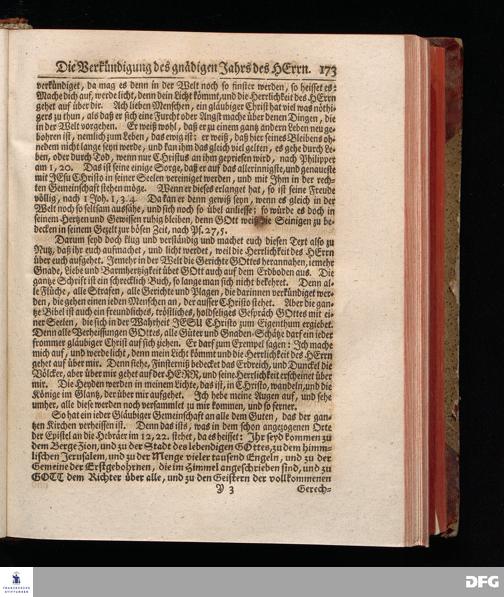 Die Verkündigung des gnädigen Jahrs des HErrn. 173
verkündiget, da mag es denn in der Welt noch so finster werden, so heisset es:
Mache dich auf, werde licht, denn dein Licht kömmt, und die Herrlichkeit des HErrn
gehet auf über dir. Ach lieben Menschen, ein gläubiger Christ hat viel was nöthi-
gers zu thun, als daß er sich eine Furcht oder Angst mache über denen Dingen, die
in der Welt vorgehen. Er weiß wohl, daß er zu einem gantz andern Leben neu ge-
bohren ist, nemlich zum Leben, das ewig ist: er weiß, daß hier seines Bleibens oh-
nedem nicht lange seyn werde, und kan ihm das gleich viel gelten, es gehe durch Le-
ben, oder durch Tod, wenn nur Christus an ihm gepriesen wird, nach Philipper
am 1, 20. Das ist seine einige Sorge, daß er auf das allerinnigste, und genaueste
mit JEsu Christo in seiner Seelen vereiniget werden, und mit Ihm in der rech-
ten Gemeinschaft stehen möge. Wenn er dieses erlanget hat, so ist seine Freude
völlig, nach 1 Joh. 1, 3. 4. Da kan er denn gewiß seyn, wenn es gleich in der
Welt noch so seltsam aussähe, und sich noch so übel anliesse; so würde es doch in
seinem Hertzen und Gewissen ruhig bleiben, denn GOtt weiß die Seinigen zu be-
decken in seinem Gezelt zur bösen Zeit, nach Ps. 27, 5.
Darum seyd doch klug und verständig und machet euch diesen Text also zu
Nutz, daß ihr euch aufmachet, und licht werdet, weil die Herrlichkeit des HErrn
über euch aufgehet. Jemehr in der Welt die Gerichte GOttes herannahen, jemehr
Gnade, Liebe und Barmhertzigkeit übet GOtt auch auf dem Erdboden aus. Die
gantze Schrift ist ein schrecklich Buch, so lange man sich nicht bekehret. Denn al-
le Flüche, alle Strafen, alle Gerichte und Plagen, die darinnen verkündiget wer-
den, die gehen einen ieden Menschen an, der ausser Christo stehet. Aber die gan-
tze Bibel ist auch ein freundliches, tröstliches, holdseliges Gespräch GOttes mit ei-
ner Seelen, die sich in der Wahrheit JESU Christo zum Eigenthum ergiebet.
Denn alle Verheissungen GOttes, alle Güter und Gnaden-Schätze darf ein ieder
frommer gläubiger Christ auf sich ziehen. Er darf zum Exempel sagen: Ich mache
mich auf, und werde licht, denn mein Licht kömmt und die Herrlichkeit des HErrn
gehet auf über mir. Denn siehe, Finsterniß bedecket das Erdreich, und Dunckel die
Völcker, aber über mir gehet auf der HERR, und seine Herrlichkeit erscheinet über
mir. Die Heyden werden in meinem Lichte, das ist, in Christo, wandeln, und die
Könige im Glantz, der über mir aufgehet. Ich hebe meine Augen auf, und sehe
umher, alle diese werden noch versammlet zu mir kommen, und so ferner.
So hat ein ieder Gläubiger Gemeinschaft an alle dem Guten, das der gan-
tzen Kirchen verheissen ist. Denn das ists, was in dem schon angezogenen Orte
der Epistel an die Hebräer im 12, 22. stehet, da es heisset: Ihr seyd kommen zu
dem Berge Zion, und zu der Stadt des lebendigen GOttes, zu dem himm-
lischen Jerusalem, und zu der Menge vieler tausend Engeln, und zu der
Gemeine der Erstgebohrnen, die im Himmel angeschrieben sind, und zu
GOTT dem Richter über alle, und zu den Geistern der vollkommenen
Y 3 Gerech-
FRANCKESCHE STIFTUNGEN
DFG